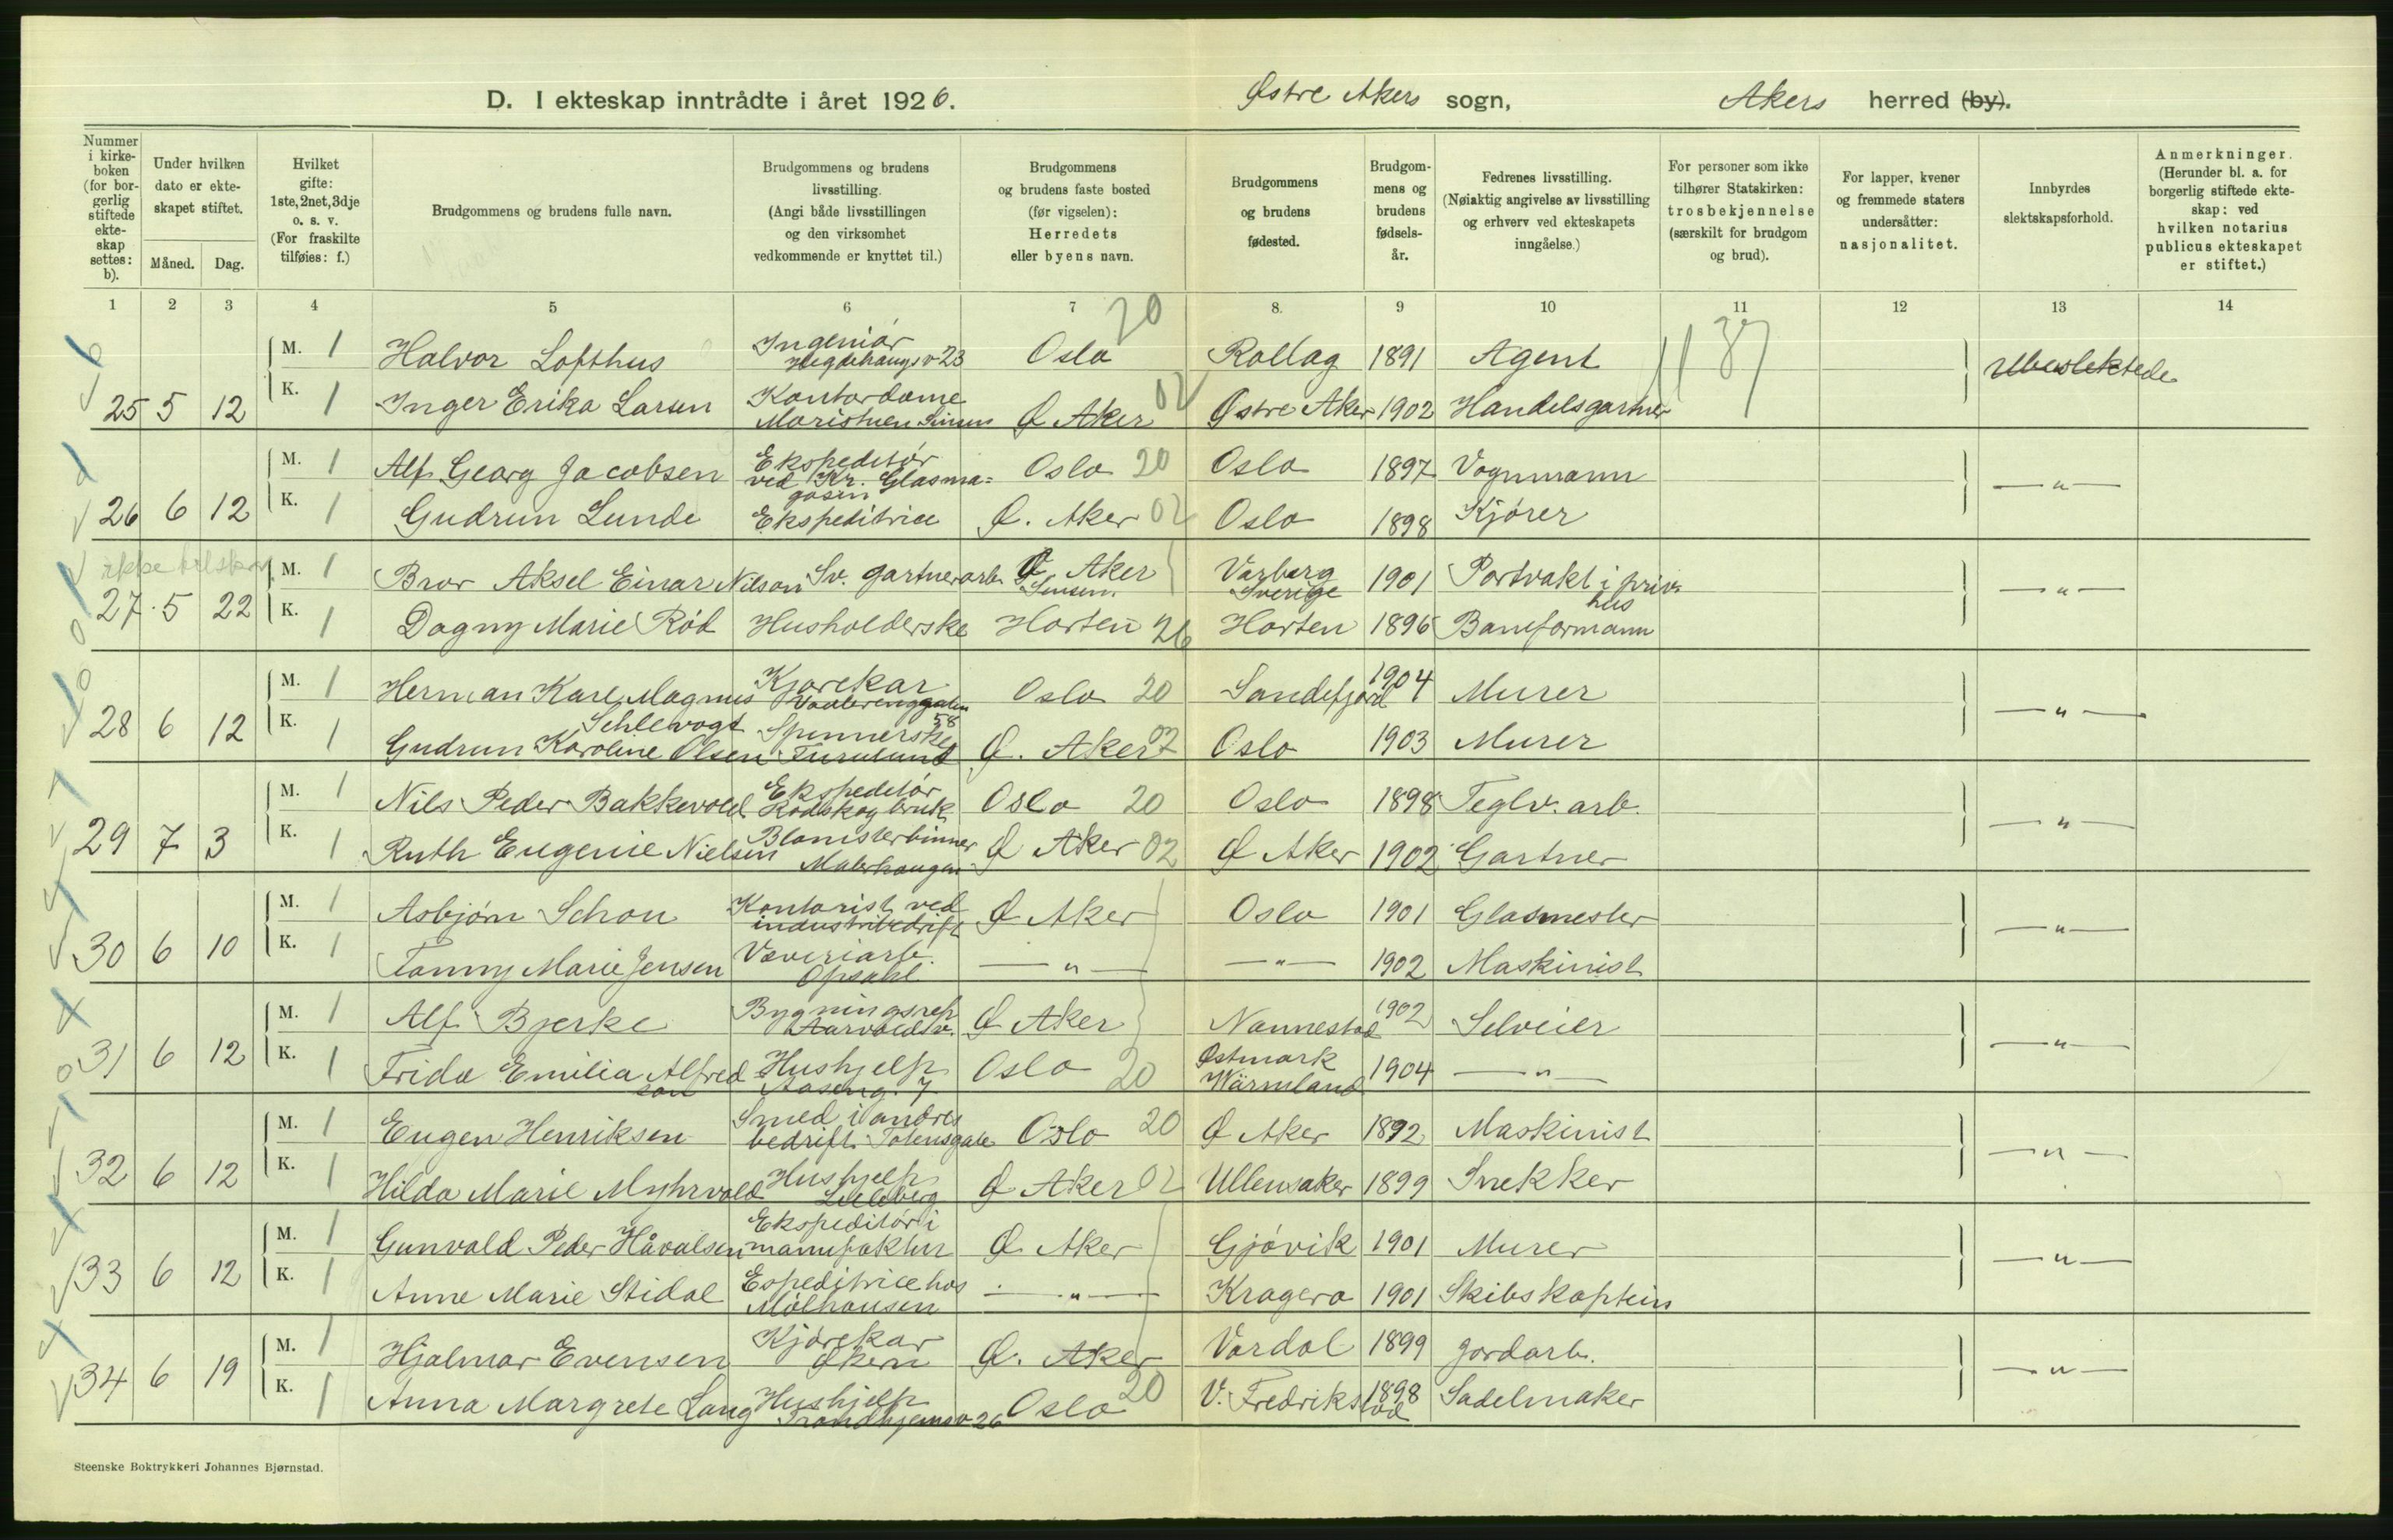 D. I ekteskap inntrådte i året 1926.
Østre Akers sogn,
Akers herred (by).
Nummer i kirke-boken (for bor-gerlig stiftede ekte-skap settes: b).
Under hvilken dato er ekte-skapet stiftet.
Måned. Dag.
Hvilket gifte: 1ste, 2net, 3dje o. s. v. (For fraskilte tilføies: f.)
Brudgommens og brudens fulle navn.
Brudgommens og brudens livsstilling. (Angi både livsstillingen og den virksomhet vedkommende er knyttet til.)
Brudgommens og brudens faste bosted (før vigselen): Herredets eller byens navn.
Brudgommens og brudens fødested.
Brudgom-mens og brudens fødsels-år.
Fedrenes livsstilling. (Nøiaktig angivelse av livsstilling og erhverv ved ekteskapets inngåelse.)
For personer som ikke tilhører Statskirken: trosbekjennelse (særskilt for brudgom og brud).
For lapper, kvener og fremmede staters undersåtter: nasjonalitet.
Innbyrdes slektskapsforhold.
Anmerkninger. (Herunder bl. a. for borgerlig stiftede ekte-skap: ved hvilken notarius publicus ekteskapet er stiftet.)
1 2 3 4 5 6 7 8. 9 10 11 12 13 14
M. 1 Halvor Lofthus Ingeniør Hegdehaugsv 23 Oslo 20 Rollag 1891 Agent Ubeslektede
25 5 12 K. 1 Inger Erika Larsen Kontordame Maristuen Sinsen Ø Aker 02 Østre Aker 1902 Handelsgartner
M. 1 Alf Georg Jacobsen Ekspeditør ved Kr. Glasma=gasin Oslo 20 Oslo 1897 Vognmann — " —
26 6 12 K. 1 Gudrun Lunde Ekspeditrice Ø. Aker 02 Oslo 1898 Kjører
M. 1 Bror Aksel Einar Nilson Sv. gartnerarb. Ø Aker Sinsen. Varberg Sverige 1901 Portvakt i priv. hus — " —
27 5 22 K. 1 Dagny Marie Rød Husholderske Horten 26 Horten 1896 Baneformann
M. 1 Herman Karl Magnus Schlevogt Kjørekar Vaalerenggaten 58 Oslo 20 Sandefjord 1904 Murer — " —
28 6 12 K. 1 Gudrun Karoline Olsen Spinnerske Furulund Ø. Aker 02 Oslo 1903 Murer
M. 1 Nils Peder Bakkevold Ekspeditør Rodskog bruk Oslo 20 Oslo 1898 Teglv. arb. — " —
29 7 3 K. 1 Ruth Eugenie Nielsen Blomsterbinner Malerhaugen Ø Aker 02 Ø Aker 1902 Gartner
M. 1 Asbjørn Schou Kontorist ved industribedrift Ø Aker Oslo 1901 Glasmester — " —
30 6 10 K. 1 Fanny Marie Jensen Væveriarb. Opsahl — " — — " — 1902 Maskinist
M. 1 Alf Bjerke Bygningsrep Aarvoldsv. Ø Aker Nannestad 1902 Selveier — " —
31 6 12 K. 1 Frida Emilia Alfredson Hushjelp Aaseng. 7 Oslo 20 Østmark Wärmland 1904 — " —
M. 1 Eugen Henriksen Smed i andres bedrift Totensgate Oslo 20 Ø Aker 1892 Maskinist — " —
32 6 12 K. 1 Hilda Marie Myhrvold Hushjelp Lilleberg Ø Aker 02 Ullensaker 1899 Snekker
M. 1 Gunvald Peder Håvalsen Ekspeditør i manufaktur Ø. Aker Gjøvik 1901 Murer — " —
33 6 12 K. 1 Anne Marie Stidal Espeditrice hos Mølhausen — " — Kragerø 1901 Skibskaptein
M. 1 Hjalmar Evensen Kjørekar Økern Ø. Aker Vardal 1899 Jordarb. — " —
34 6 19 K. 1 Anna Margrete Lang Hushjelp Trondhjemsv 26 Oslo 20 V. Fredrikstad 1898 Sadelmaker
Steenske Boktrykkeri Johannes Bjørnstad.